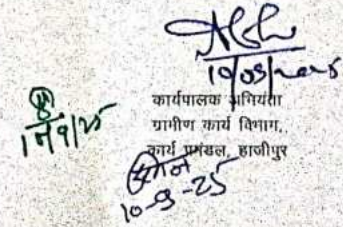 10/09/2025
कार्यपालक अभियंता
ग्रामीण कार्य विभाग,
कार्य प्रमंडल, हाजीपुर
10-9-25